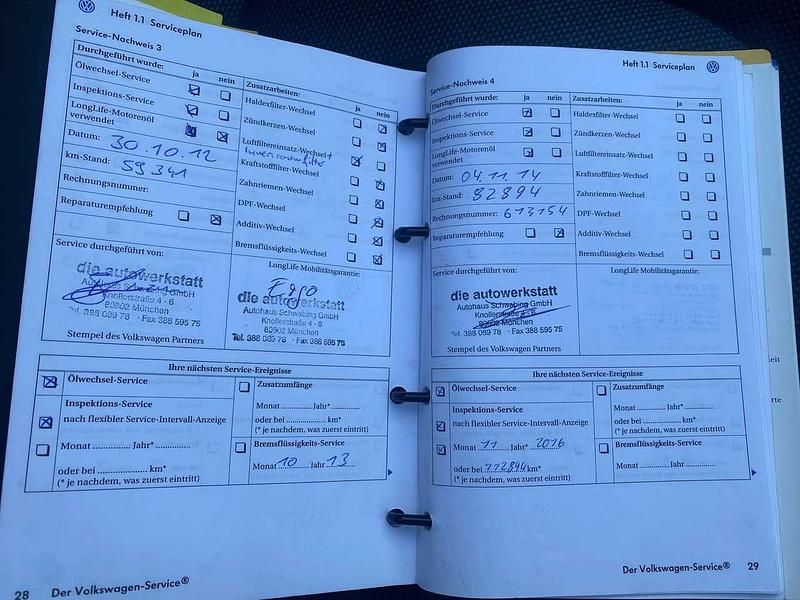 Heft 1.1 Serviceplan
Service-Nachweis 3
Durchgeführt wurde: ja nein
Ölwechsel-Service
Inspektions-Service
LongLife-Motorenöl
verwendet
Datum: 30.10.12
km-Stand: 59341
Rechnungsnummer:
Reparaturempfehlung
Zusatzarbeiten: ja nein
Haldexfilter-Wechsel
Zündkerzen-Wechsel
Luftfiltereinsatz-Wechsel+
Innenraumfilter
Kraftstofffilter-Wechsel
Zahnriemen-Wechsel
DPF-Wechsel
Additiv-Wechsel
Bremsflüssigkeits-Wechsel
Service durchgeführt von:
die autowerkstatt
Autohaus Schwabing GmbH
Knollerstraße 4 - 6
80802 München
Tel. 388 089 78 · Fax 388 595 75
Stempel des Volkswagen Partners
LongLife Mobilitätsgarantie:
die autowerkstatt
Autohaus Schwabing GmbH
Knollerstraße 4 - 6
80802 München
Tel. 388 089 78 · Fax 388 595 75
Ihre nächsten Service-Ereignisse
Ölwechsel-Service
Inspektions-Service
nach flexibler Service-Intervall-Anzeige
Monat ............ Jahr* ............
oder bei .................. km*
(* je nachdem, was zuerst eintritt)
Zusatzumfänge
Monat ............ Jahr* ............
oder bei .................. km*
(* je nachdem, was zuerst eintritt)
Bremsflüssigkeits-Service
Monat 10 Jahr 13
28 Der Volkswagen-Service®
Heft 1.1 Serviceplan
Service-Nachweis 4
Durchgeführt wurde: ja nein
Ölwechsel-Service
Inspektions-Service
LongLife-Motorenöl
verwendet
Datum: 04.11.14
km-Stand: 82894
Rechnungsnummer: 613154
Reparaturempfehlung
Zusatzarbeiten: ja nein
Haldexfilter-Wechsel
Zündkerzen-Wechsel
Luftfiltereinsatz-Wechsel
Kraftstofffilter-Wechsel
Zahnriemen-Wechsel
DPF-Wechsel
Additiv-Wechsel
Bremsflüssigkeits-Wechsel
Service durchgeführt von:
die autowerkstatt
Autohaus Schwabing GmbH
Knollerstraße 4 - 6
80802 München
Tel. 388 089 78 · Fax 388 595 75
Stempel des Volkswagen Partners
LongLife Mobilitätsgarantie:
Ihre nächsten Service-Ereignisse
Ölwechsel-Service
Inspektions-Service
nach flexibler Service-Intervall-Anzeige
Monat 11 Jahr* 2016
oder bei 112894 km*
(* je nachdem, was zuerst eintritt)
Zusatzumfänge
Monat ............ Jahr* ............
oder bei .................. km*
(* je nachdem, was zuerst eintritt)
Bremsflüssigkeits-Service
Monat ............ Jahr ............
Der Volkswagen-Service® 29